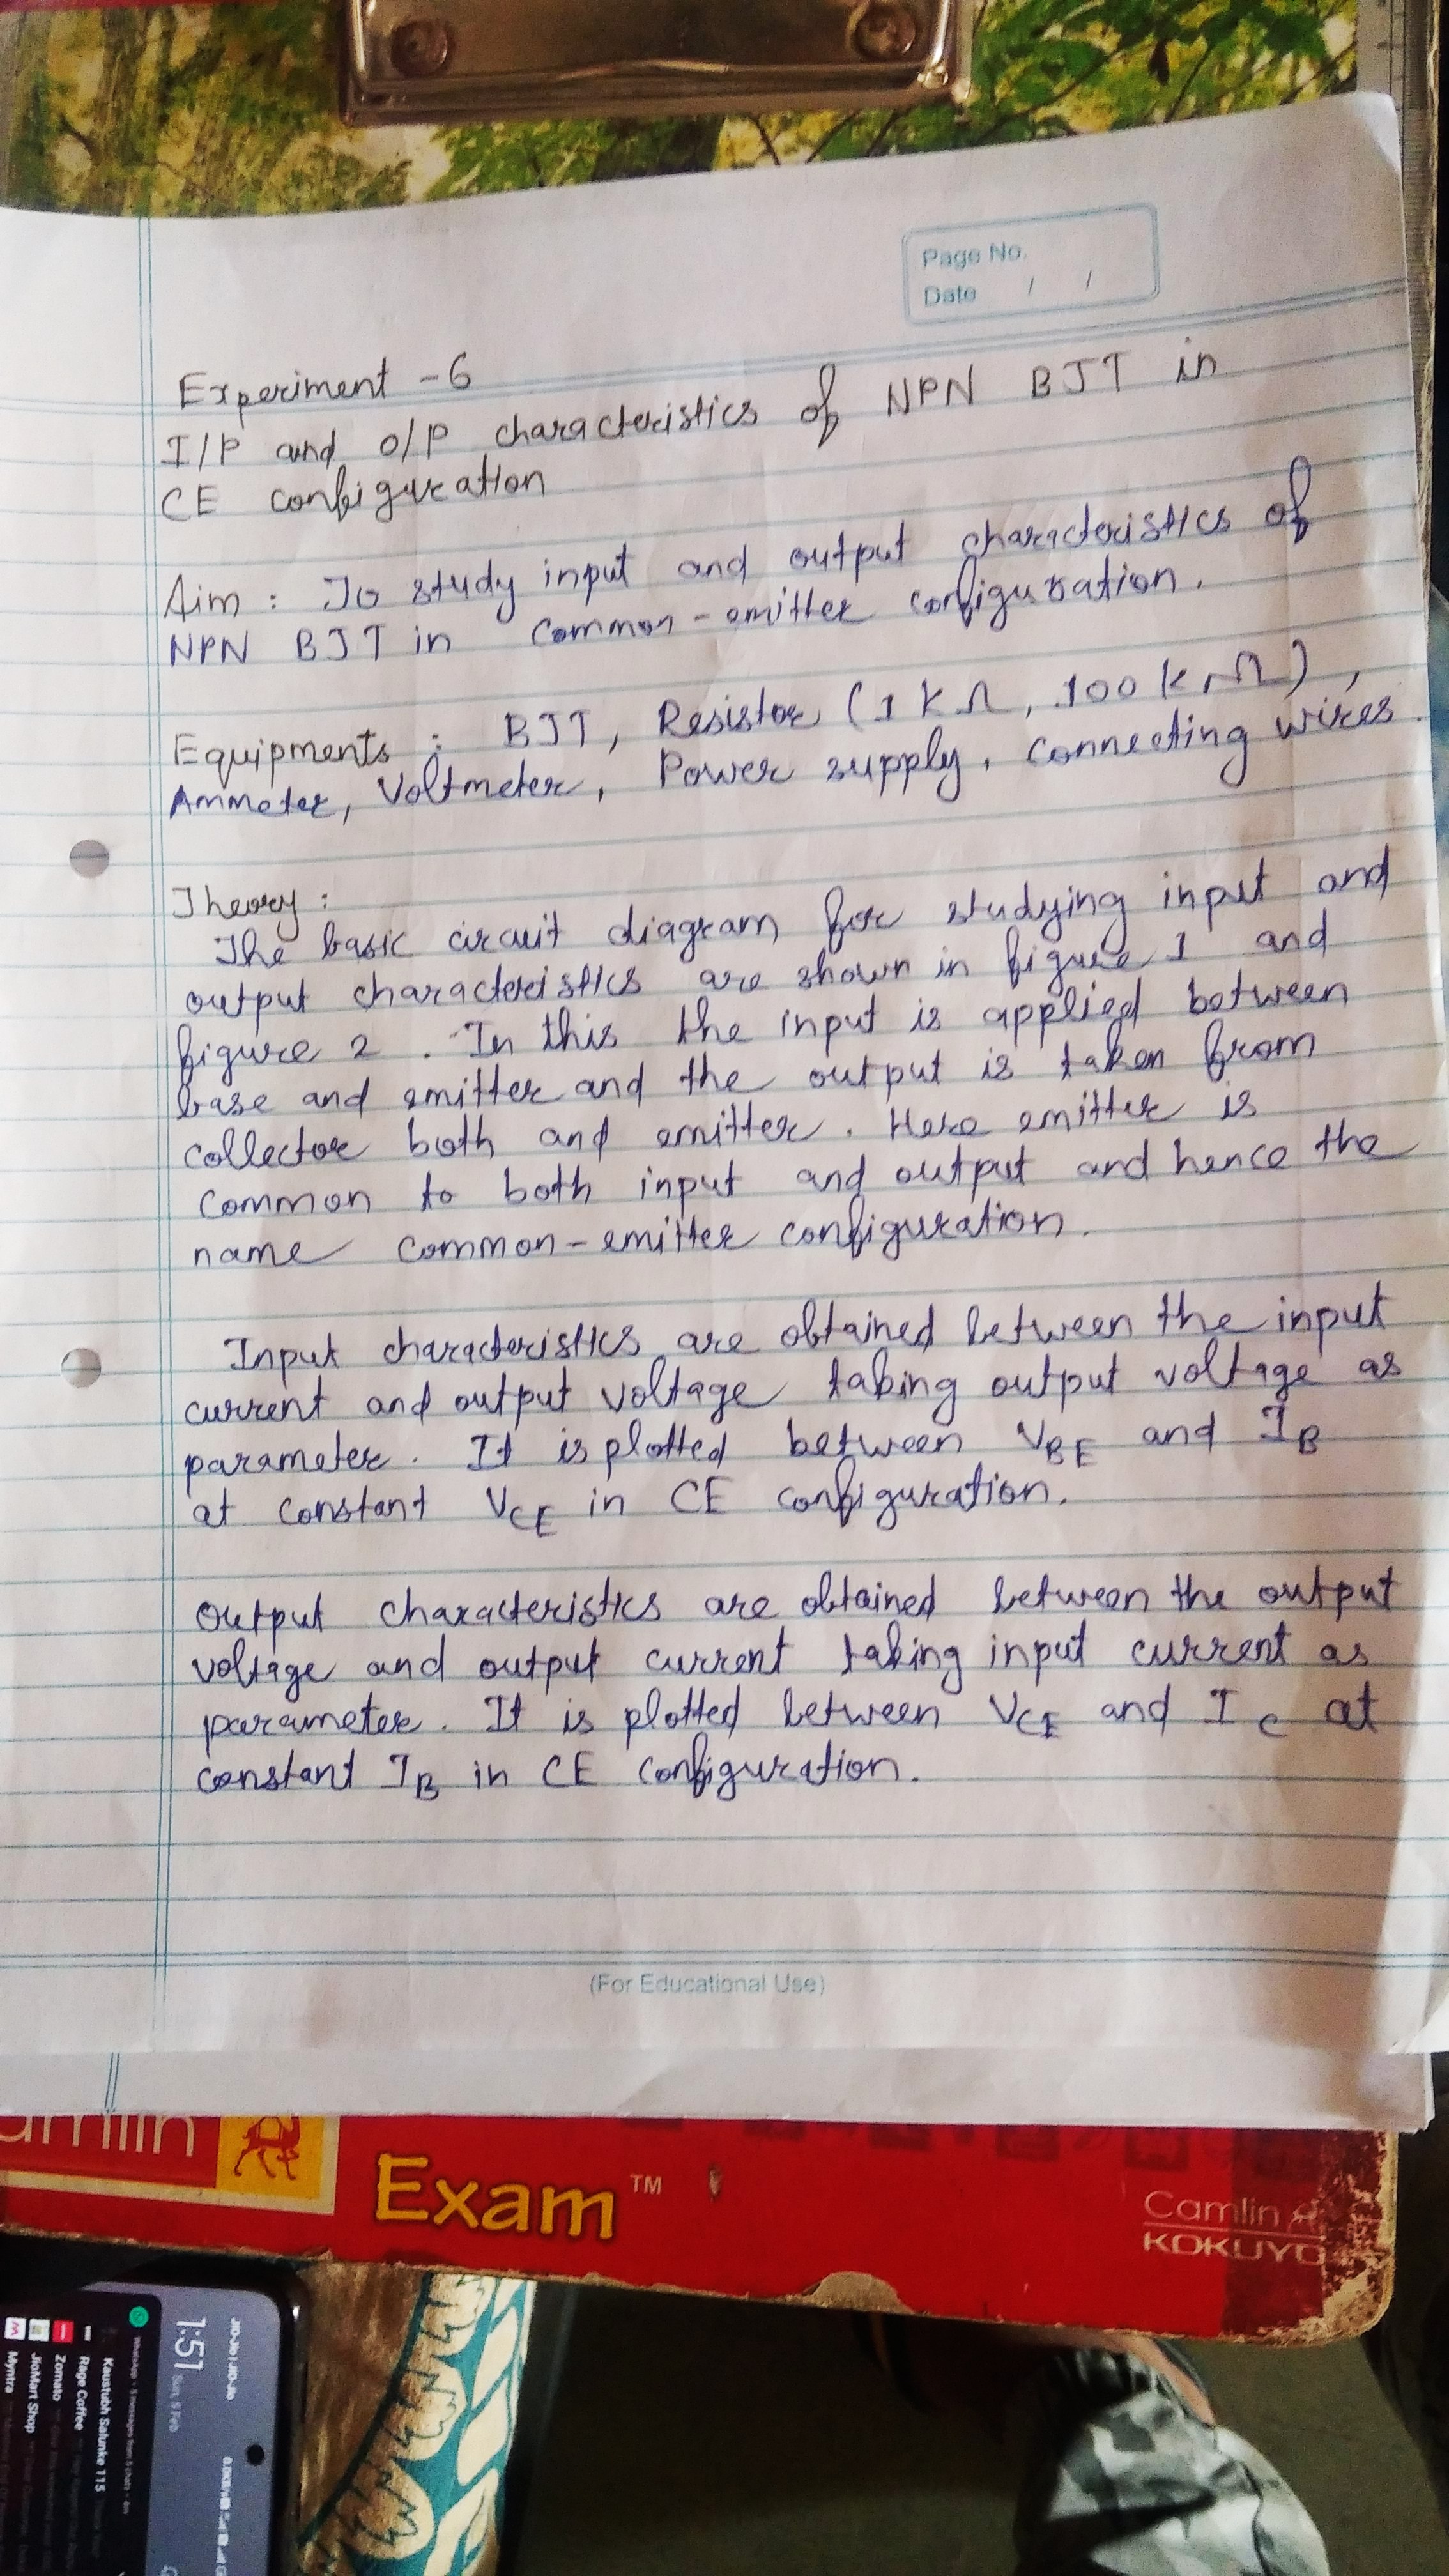 Page No.
Date / /
Experiment - 6
I/P and O/P characteristics of NPN BJT in
CE configuration
Aim : To study input and output characteristics of
NPN BJT in common-emitter configuration.
Equipments : BJT, Resistor (1 kΩ, 100 k Ω),
Ammeter, Voltmeter, Power supply, connecting wires.
Theory :
The basic circuit diagram for studying input and
output characteristics are shown in figure 1 and
figure 2. In this the input is applied between
base and emitter and the output is taken from
collector both and emitter. Here emitter is
common to both input and output and hence the
name common-emitter configuration.
Input characteristics are obtained between the input
current and output voltage taking output voltage as
parameter. It is plotted between VBE and IB
at constant VCE in CE configuration.
Output characteristics are obtained between the output
voltage and output current taking input current as
parameter. It is plotted between VCE and IC at
constant IB in CE configuration.
(For Educational Use)
amlin
Exam™
Camlin
KOKUYO
1:51
Sun, 5 Feb
Kaustubh Salunke 115
Rage Coffee
Zomato
JioMart Shop
Myntra